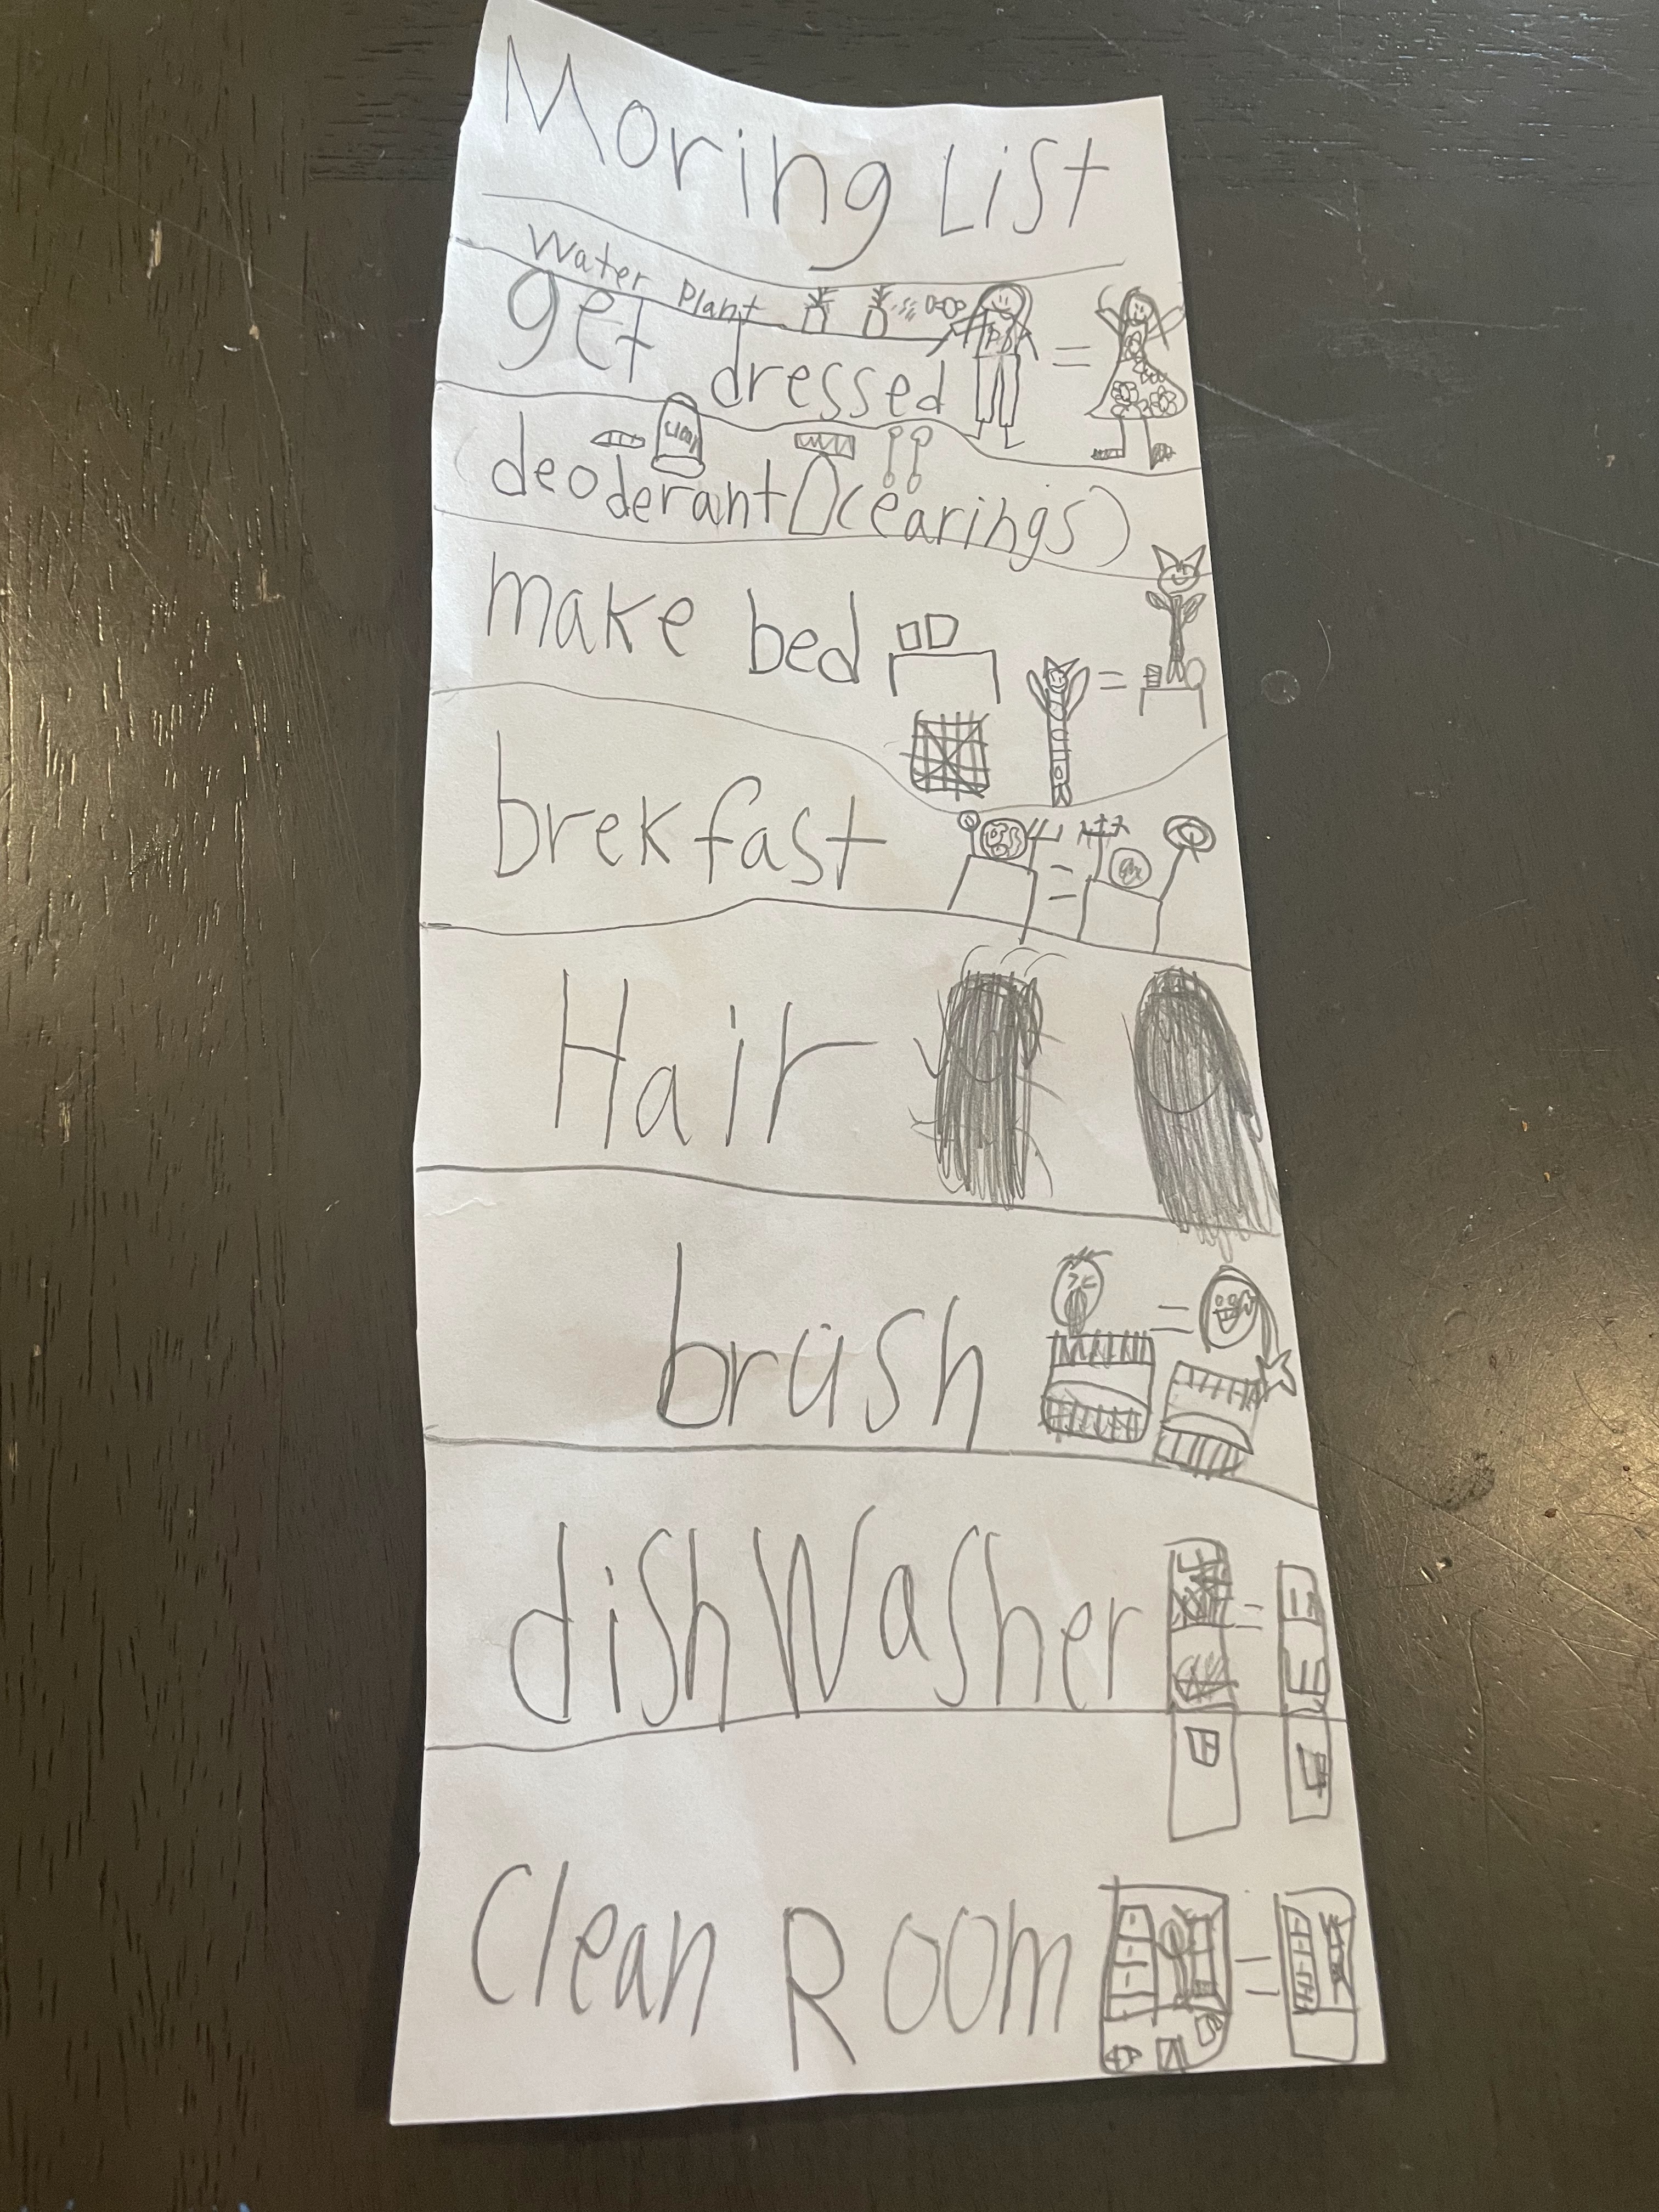 Moring List
Water Plant
get dressed
(deoderant (earings)
make bed
brekfast
Hair
brush
dishWasher
Clean Room